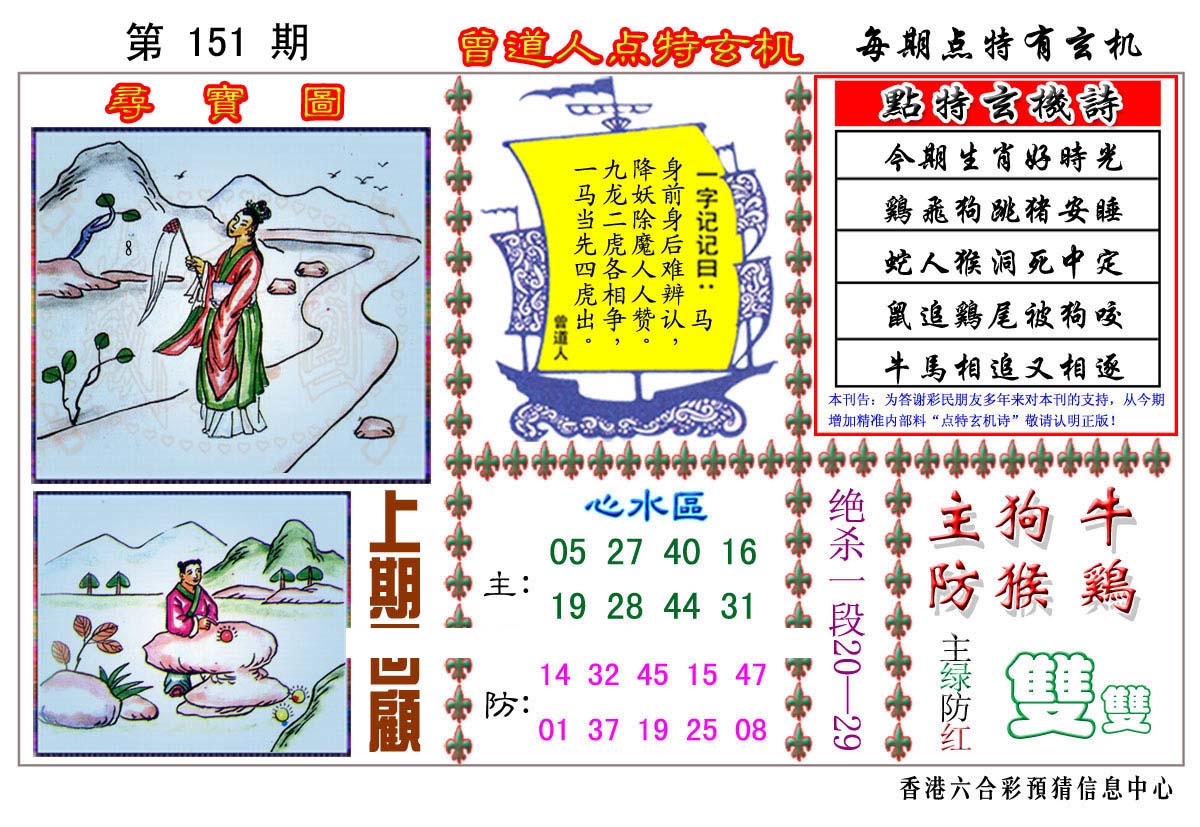 第 151 期
曾道人点特玄机
每期点特有玄机
尋寶圖
8
一字记记曰：马
身前身后难辨认，
降妖除魔人人赞。
九龙二虎各相争，
一马当先四虎出。
曾道人
點特玄機詩
今期生肖好時光
鷄飛狗跳猪安睡
蛇人猴洞死中定
鼠追鷄尾被狗咬
牛馬相追又相逐
本刊告：为答谢彩民朋友多年来对本刊的支持，从今期
增加精准内部料“点特玄机诗”敬请认明正版！
上期回顧
心水區
主：
05 27 40 16
19 28 44 31
防：
14 32 45 15 47
01 37 19 25 08
绝杀一段20—29
主狗牛
防猴鷄
主绿防红
雙雙
香港六合彩預猜信息中心